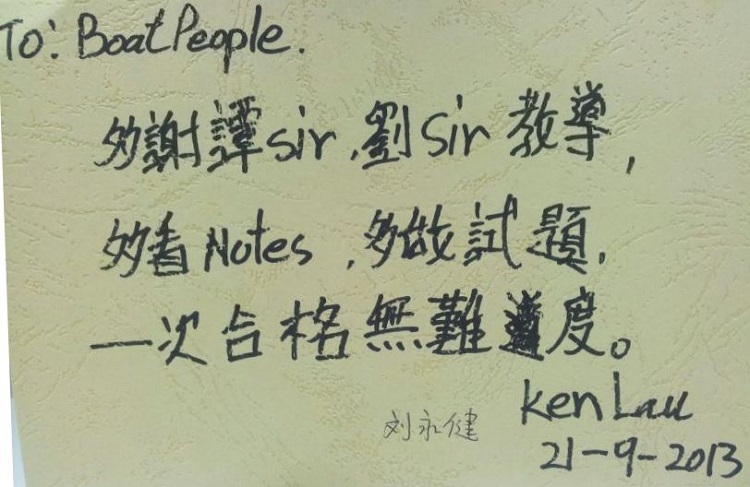 To: Boat People.
多謝譚sir,劉Sir教導,
多看Notes,多做試題,
一次合格無難度。
Ken Lau
刘永健
21-9-2013